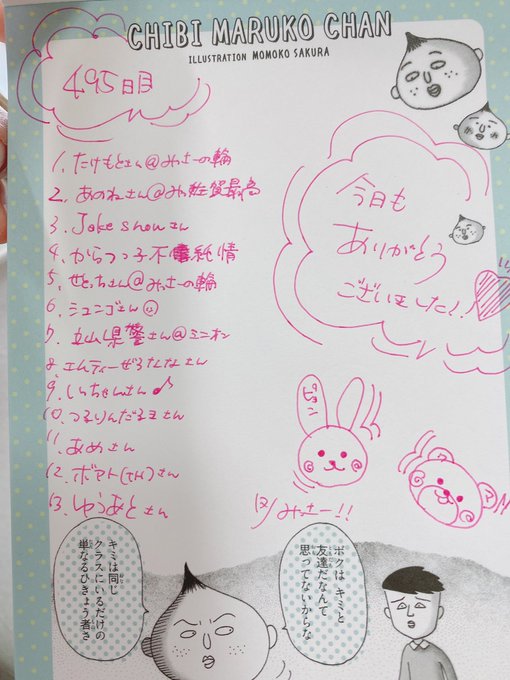 CHIBI MARUKO CHAN
ILLUSTRATION MOMOKO SAKURA
495日目
1. たけもとさん@みっさーの輪
2. あのねさん@みっ 佐賀最高
3. Joke showさん
4. からつっ子不 純情
5. せとっちさん@みっさーの輪
6. シュニゴさん
7. 立山県警さん@ミニオン
8. エムティーぜろななさん
9. しっちゃんさん♪
10. つるりんだるまさん
11. あめさん
12. ボアト(TEN)さん
13. ゆうあとさん
今日も
ありがとう
ございました!!
ピョン
みっさー!!
ボクは キミと
友達だなんて
思ってないからな
キミは同じ
クラスにいるだけの
単なるひきょう者さ